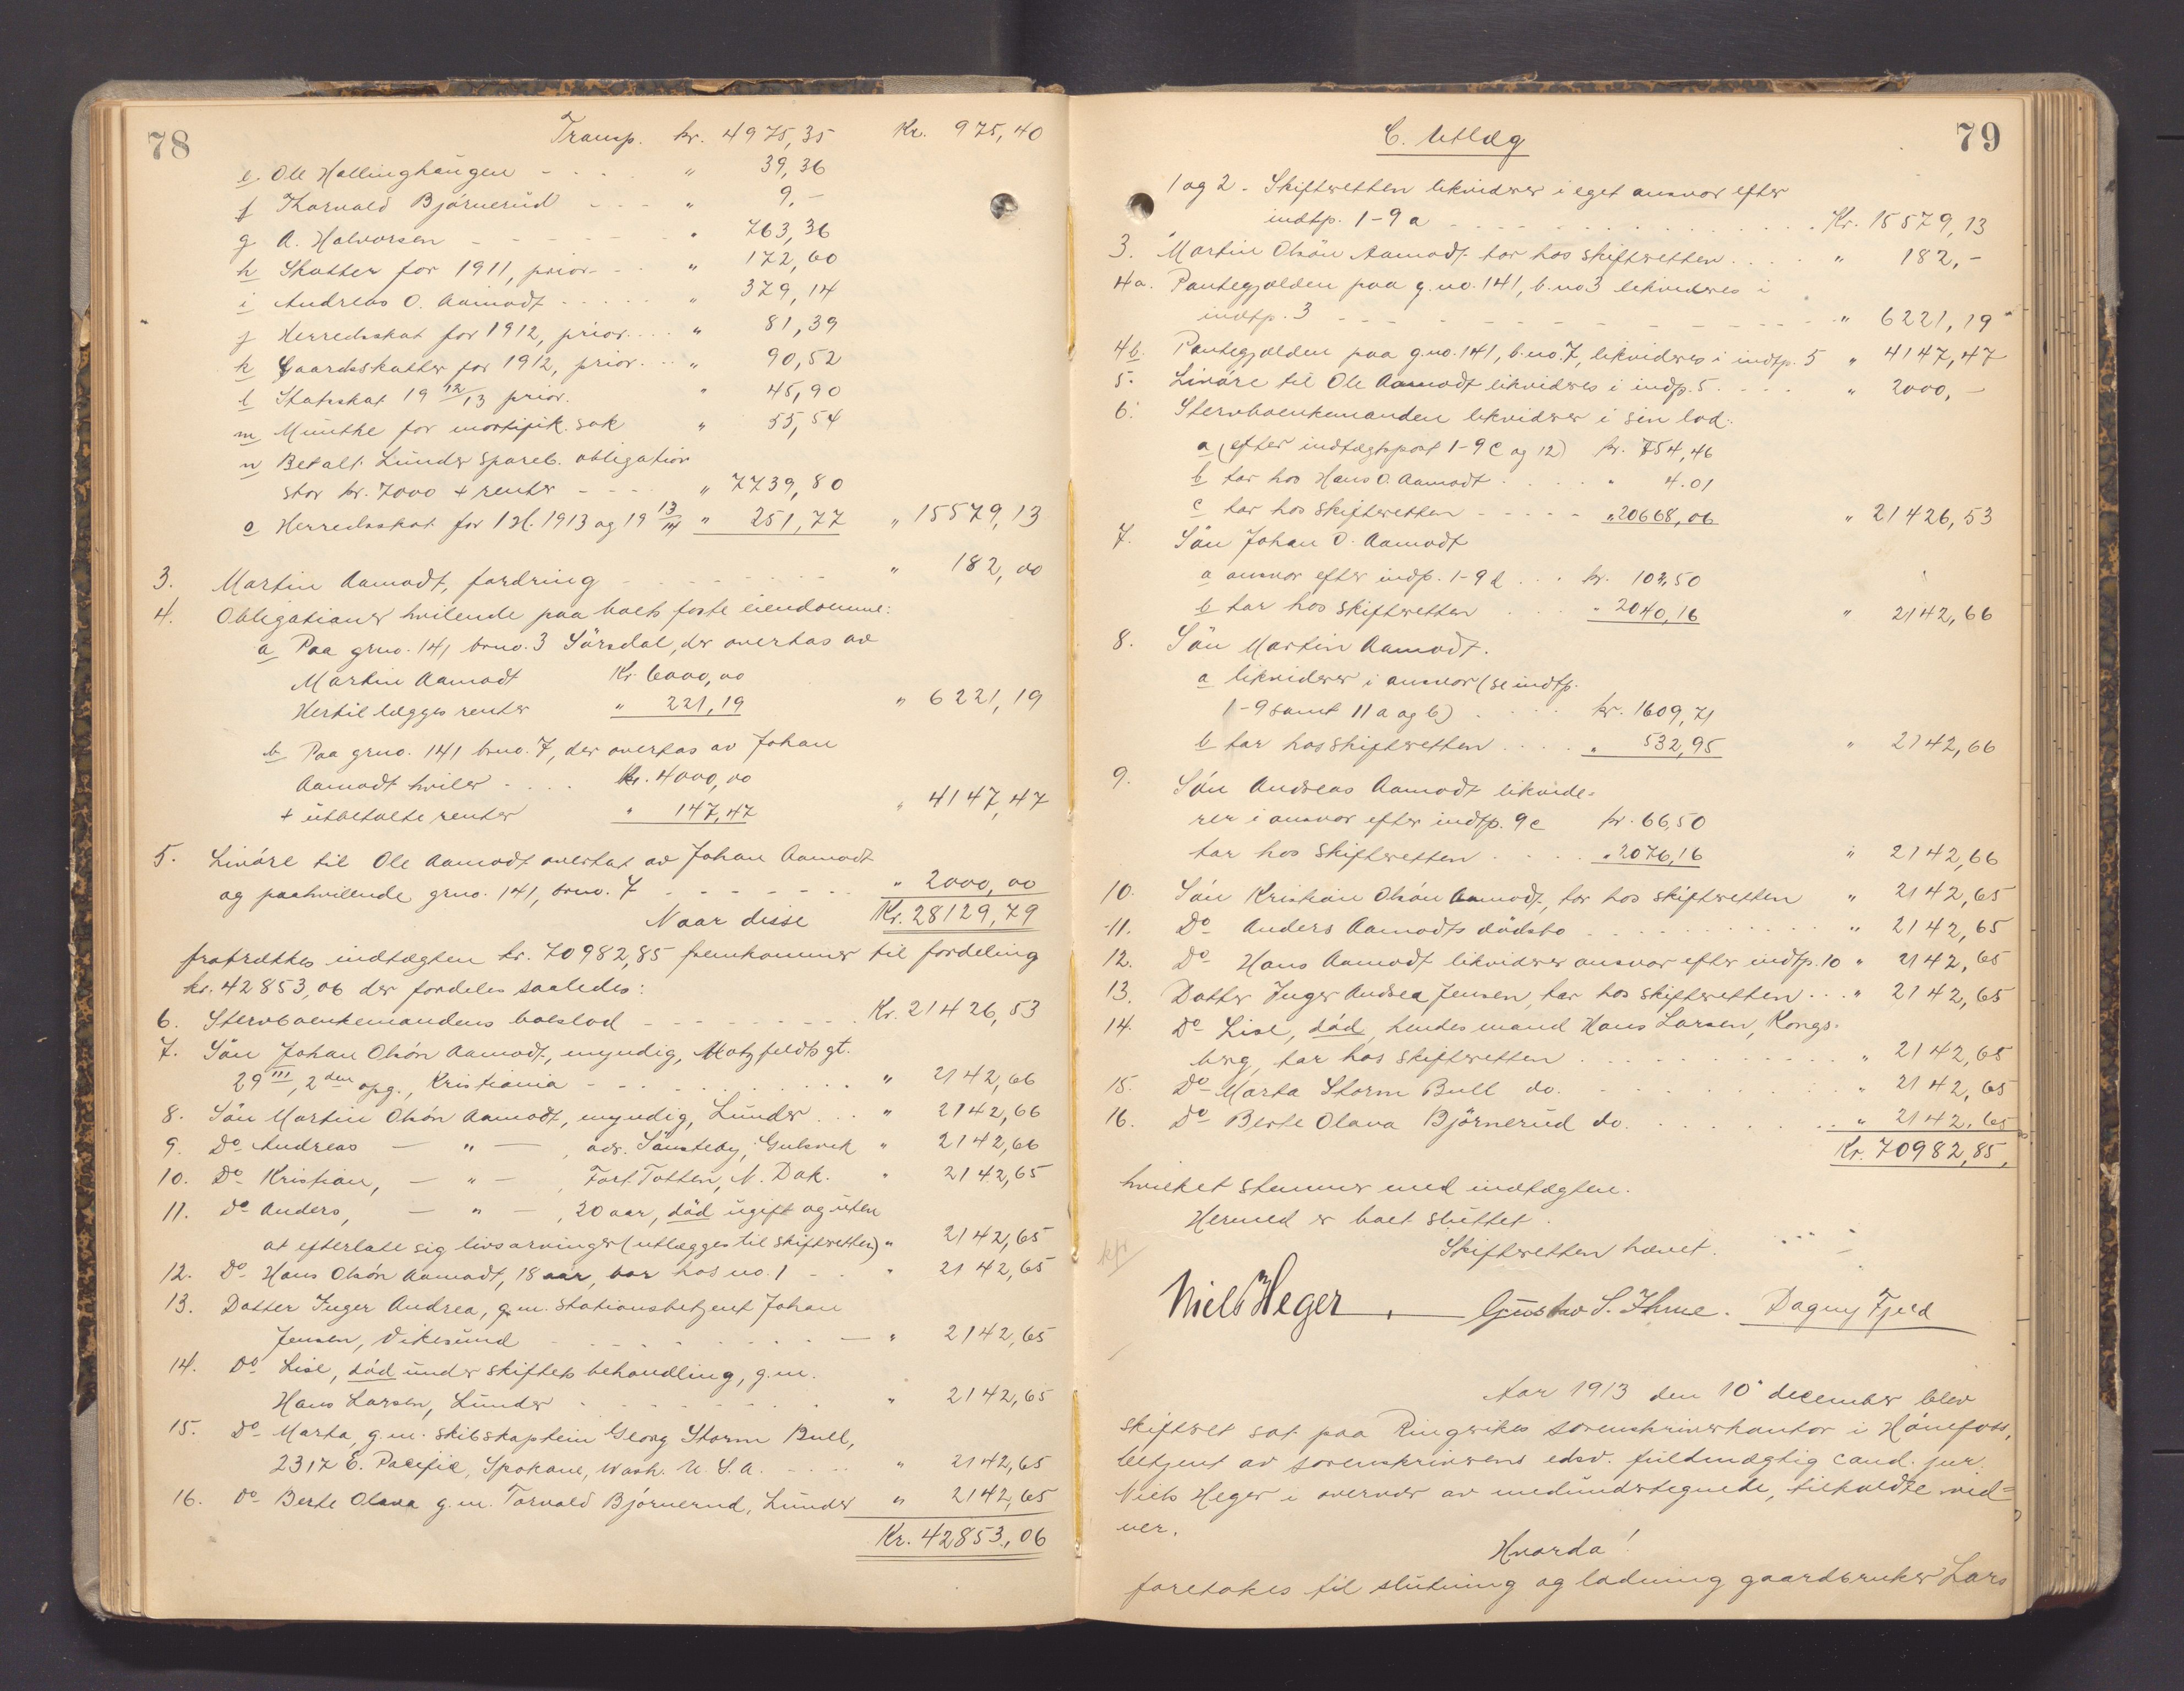 78
Transp. kr. 4975,35 Kr. 975,40
e. Ole Hallinghaugen - - - - " 39,36
f Thorvald Björnerud - - - " 9,-
g A. Halvorsen - - - - - - " 763,36
h Skatter for 1911, prior. - - " 172,60
i Andreas O. Aamodt - - - - - " 379,14
j Herredsskat for 1912, prior. - - " 81,39
k Gaardsskatter for 1912, prior. - - " 90,52
l Statsskat 19 12/13 prior. " 45,90
m Munthe for mortifik. sak " 55,54
n Betalt Lunder spareb. obligation
stor kr. 7000 + renter - - - " 7739,80
o Herredsskat for 1 H. 1913 og 19 13/14 " 251,77 " 15579,13
3. Martin Aamodt, fordring - - - - - - - - " 182,00
4. Obligationer hvilende paa boets faste eiendomme:
a Paa grno. 141 brno. 3 Sörsdal, der overtas av
Martin Aamodt Kr. 6000,00
Hertil lægges renter " 221,19 " 6221,19
b Paa grno. 141 brno. 7, der overtas av Johan
Aamodt hviler . . . . Kr. 4000,00
+ utbetalte renter " 147,47 " 4147,47
5. Livöre til Ole Aamodt overtat av Johan Aamodt
og paahvilende grno. 141, brno. 7 - - - - - - - " 2000,00
Naar disse Kr. 28129,79
fratrækkes indtægten kr. 70982,85 fremkommer til fordeling
kr. 42853,06 der fordeles saaledes:
6. Stervboenkemandens boeslod - - - - - - - - Kr. 21426,53
7. Sön Johan Olsön Aamodt, myndig, Motzfeldts gt.
29 III, 2den opg., Kristiania - - - - - - - " 2142,66
8. Sön Martin Olsön Aamodt, myndig, Lunder . . " 2142,66
9. Do Andreas — " — , adr. Sönsteby, Gulsvik " 2142,66
10. Do Kristian, — " — , Fort Totten, N. Dak. " 2142,65
11. do Anders, — " — , 20 aar, död ugift og uten
at efterlate sig livsarvinger (utlægges til skifteretten) " 2142,65
12. Do Hans Olsön Aamodt, 18 aar, bor hos no. 1 - - " 2142,65
13. Datter Inger Andrea, g.m. stationsbetjent Johan
Jensen, Vikesund - - - - - - - - " 2142,65
14. Do Lise, död under skiftets behandling, g.m.
Hans Larsen, Lunder - - - - - - - - " 2142,65
15. Do Marta, g.m. skibskaptein Georg Storm Bull,
2317 E. Pacific, Spokane, Wash. U.S.A. - - - - " 2142,65
16. Do Berte Olava g.m. Torvald Björnerud, Lunder " 2142,65
Kr. 42853,06
79
C. Utlæg
1 og 2. Skifteretten likviderer i eget ansvar efter
indtp. 1-9 a - - - - - - - - - - Kr. 15579,13
3. Martin Olsön Aamodt tar hos skifteretten . . . . " 182,-
4a. Pantegjælden paa g.no. 141, b.no 3 likvideres i
indtp. 3 - - - - - - - - - - " 6221,19
4b. Pantegjælden paa g.no. 141, b.no. 7, likvideres i indtp. 5 " 4147,47
5. Livöre til Ole Aamodt likvideres i indp. 5. - - - " 2000,-
6. Stervboenkemanden likviderer i sin lod:
a (efter indtægtspost 1-9 c og 12) kr. 754,46
b tar hos Hans O. Aamodt . . . . " 4.01
c tar hos skifteretten - - - - - " 20668,06 " 21426,53
7. Sön Johan O. Aamodt
a ansvar efter indp. 1-9 d . . . kr. 102,50
b tar hos skifteretten . . . . " 2040,16 " 2142,66
8. Sön Martin Aamodt.
a likviderer i ansvar (se indtp.
1-9 samt 11 a og b) . . . . kr. 1609,71
b tar hos skifteretten . . . . " 532,95 " 2142,66
9. Sön Andreas Aamodt likvide=
rer i ansvar efter indtp. 9 e kr. 66,50
tar hos skifteretten . . . . . " 2076,16 " 2142,66
10. Sön Kristian Olsön Aamodt, tar hos skifteretten " 2142,65
11. Do Anders Aamodts dödsbo . . . . . . . . . . " 2142,65
12. Do Hans Aamodt likviderer ansvar efter indtp. 10 " 2142,65
13. Datter Inger Andrea Jensen, tar hos skifteretten . . . " 2142,65
14. Do Lise, död, hendes mand Hans Larsen, Kongs-
berg, tar hos skifteretten . . . . . . . . . . " 2142,65
15. Do Marta Storm Bull do. - - - - - - " 2142,65
16. Do Berte Olava Björnerud do. . . . . . . . " 2142,65
Kr. 70982,85,
hvilket stemmer med indtægten.
Hermed er boet sluttet.
Skifteretten hævet.
Niels Heger, Gustav S. Ihme. Dagny Fjeld
Aar 1913 den 10' december blev
skifteret sat paa Ringerikes sorenskriverkontor i Hönefoss,
betjent av sorenskriverens edsv. fuldmægtig cand. jur.
Niels Heger i overvær av medundertegnede, tilkaldte vid=
ner.
Hvorda!
foretokes til slutning og lodning gaardbruker Lars